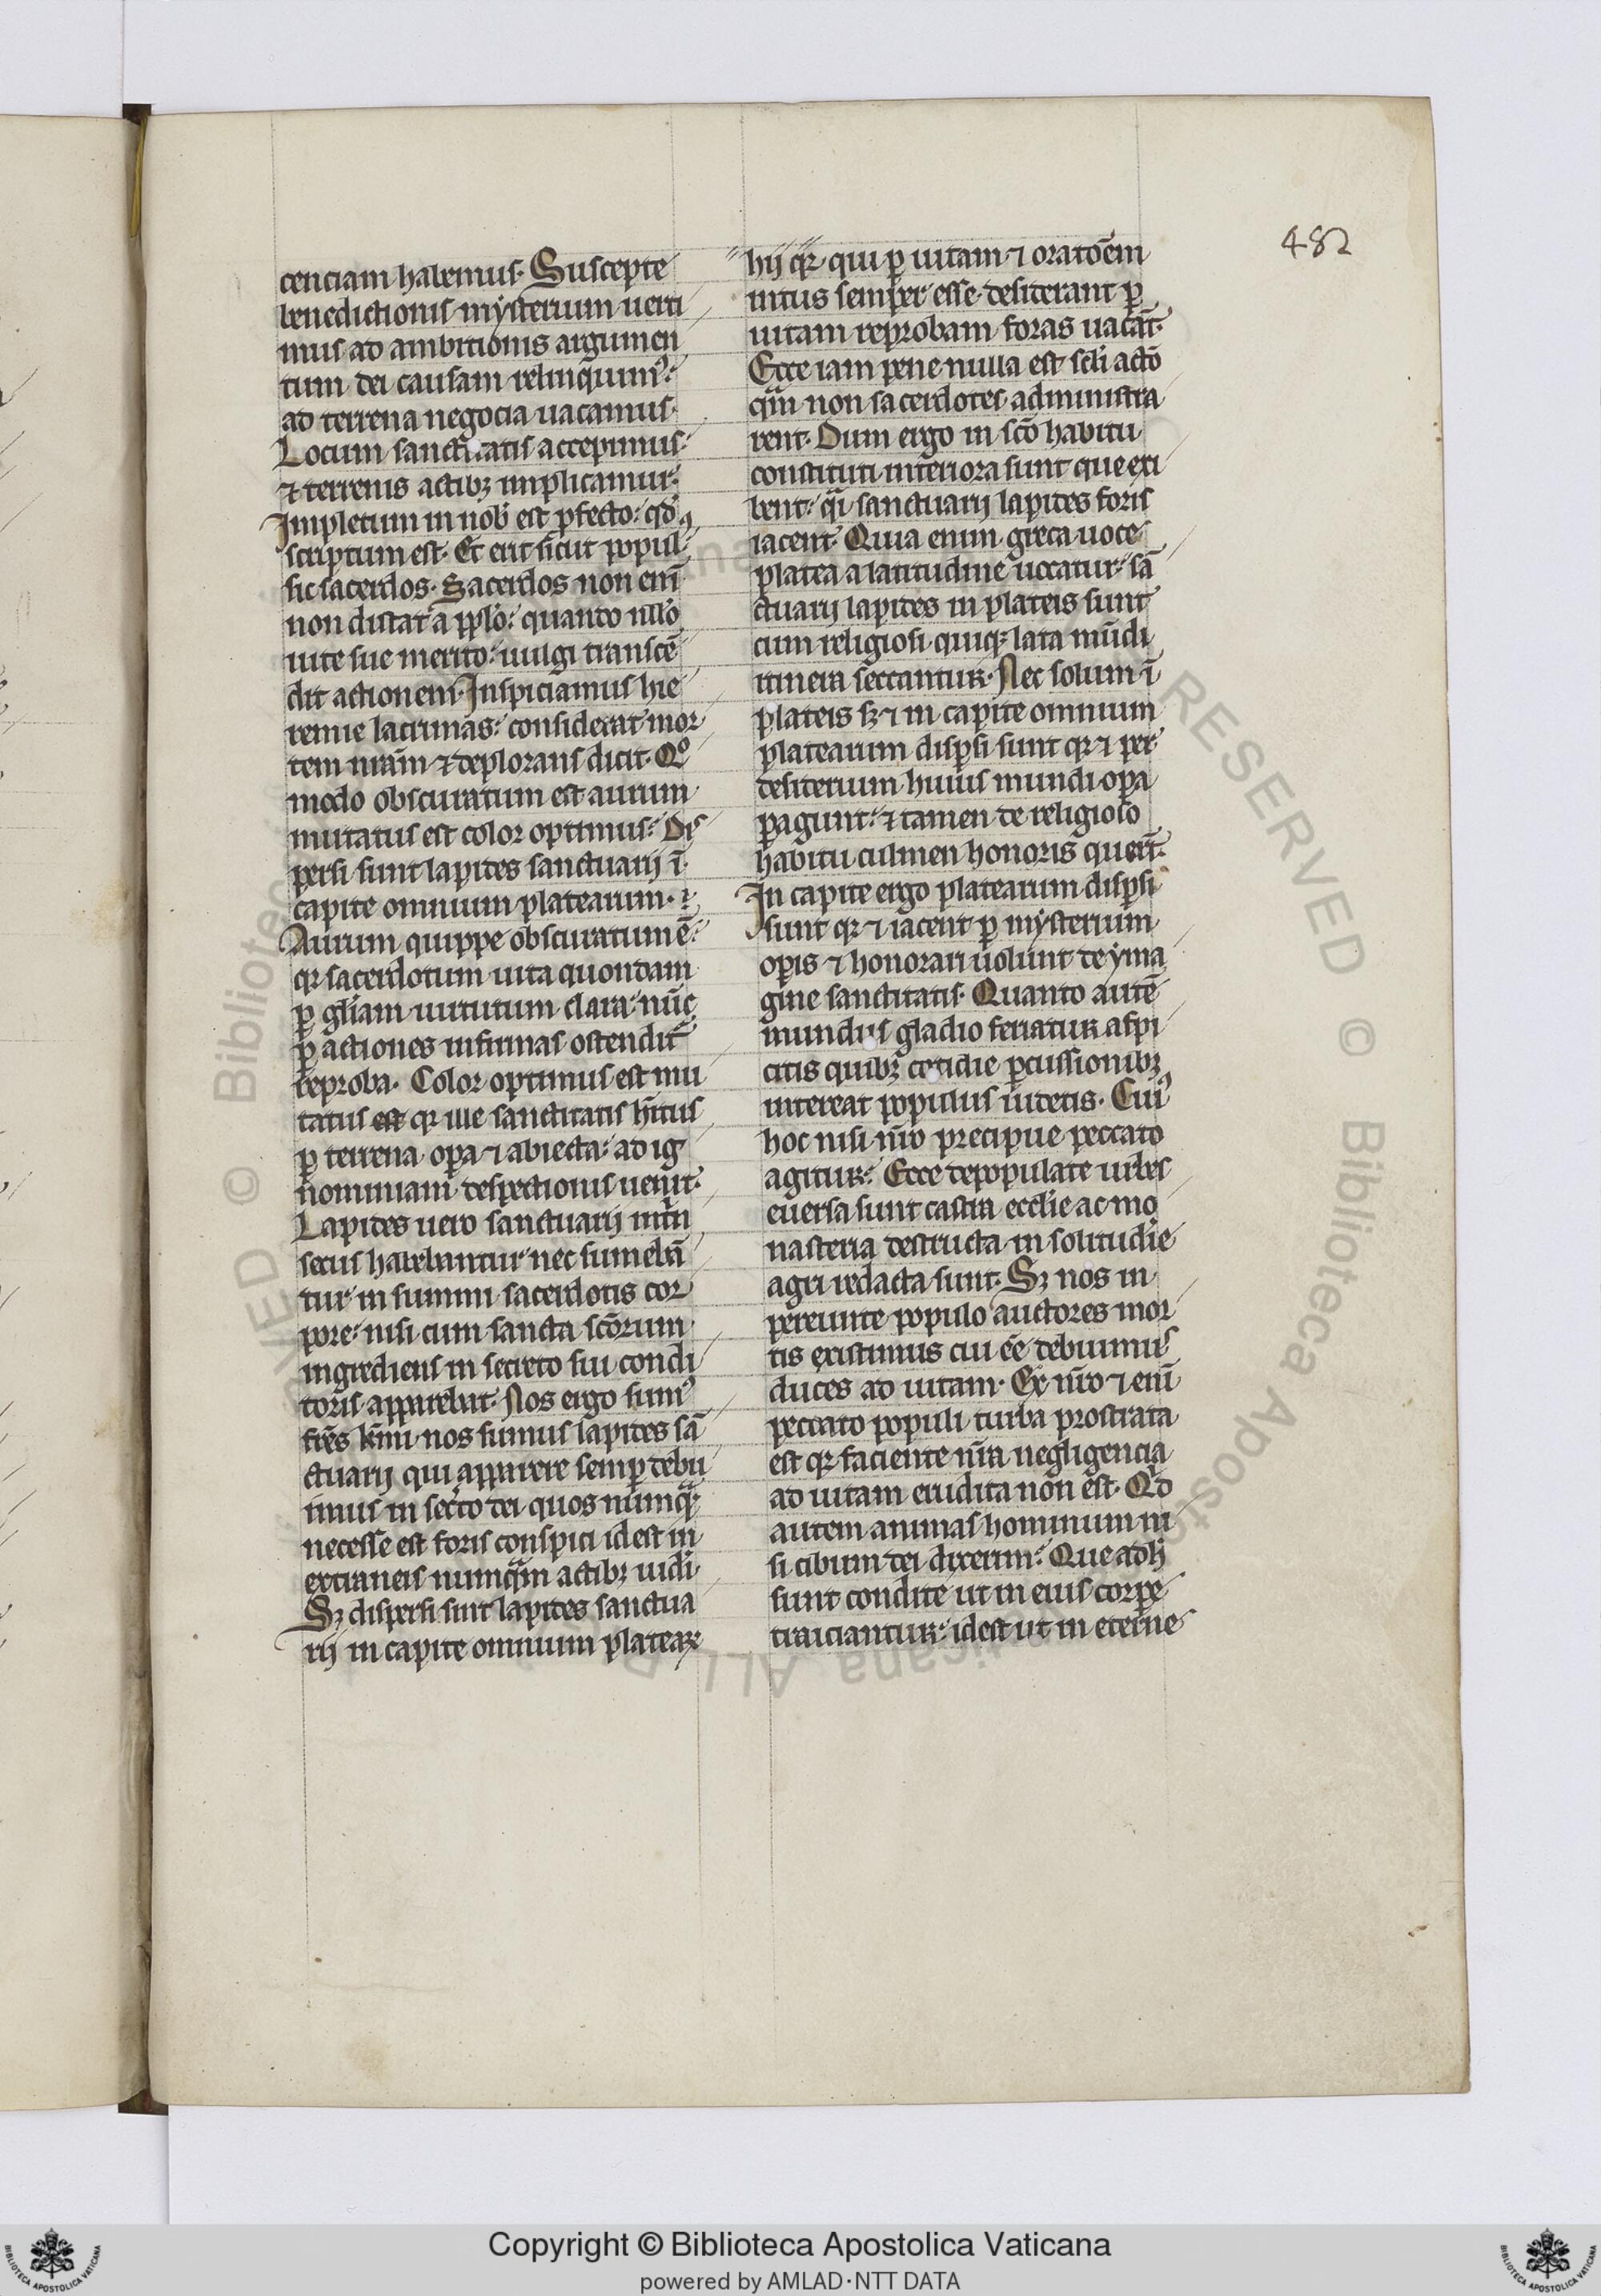 482
cenciam habemus. Suscepte
benedictionis mysterium uerti
mus ad ambitionis argumen
tum dei causam relinquimꝰ:
ad terrena negocia uacamus.
Locum sanctitatis accepimus:
⁊ terrenis actibꝫ implicamur.
Impletum in nob̄ est ꝓfecto: qd̄
scriptum est. Et erit sicut popul
sic sacerdos. Sacerdos non eni̅
non distat a pplo: quando nullo
uite sue merito: uulgi transce̅
dit actionem. Inspiciamus hie
remie lacrimas: considerat mor
tem nr̅am ⁊ deplorans dicit. Qͦ
modo obscuratum est aurum
mutatus est color optimus: Dis
persi sunt lapides sanctuarij i̅
capite omnium platearum.
Aurum quippe obscuratum e̅:
qr sacerdotum uita quondam
ꝑ gl̅iam uirtutum clara: nu̅c
ꝑ actiones infirmas ostendit᷑
reproba. Color optimus est mu
tatus est qr ille sanctitatis h̅itus
ꝑ terrena oꝑa ⁊ abiecta: ad ig
nominiam despectionis uenit.
Lapides uero sanctuarij intri̅
secus habebantur nec sumeba̅
tur in summi sacerdotis cor
pore: nisi cum sancta sc̅orum
ingrediens in secreto sui condi
toris apparebat. Nos ergo sumꝰ
fr̅es kr̅mi nos sumus lapides sa̅
ctuarij qui apparere semꝑ debu
imus in secreto dei quos numqᷓ
necesse est foris conspici id est in
extraneis numqᷓm actibꝫ uidi.
Sꝫ dispersi sunt lapides sanctua
rij in capite omnium plateaꝝ
hij qr qui ꝑ uitam ⁊ orato̅em
intus semper esse desiderant ꝑ
uitam reprobam foras uaca̅t.
Ecce iam pene nulla est sc̅li actō
qᷓm non sacerdotes administra
rent. Dum ergo in sc̅o habitu
constituti interiora sunt que exi
bent: qᷓi sanctuarij lapides foris
iacent. Quia enim greca uoce
platea a latitudine uocatur: sa̅
ctuarij lapides in plateis sunt
cum religiosi quiqꝫ lata mu̅di
itinera sectantur. Nec solum i̅
plateis sꝫ ⁊ in capite omnium
platearum disꝑsi sunt qr ⁊ per
desiderium huius mundi oꝑa
ꝑagunt: ⁊ tamen de religioso
habitu culmen honoris quer̅t.
In capite ergo platearum disꝑsi
sunt qr ⁊ iacent ꝑ mysterium
oꝑis ⁊ honorari uolunt de yma
gine sanctitatis. Quanto aute̅
mundus gladio feriatur aspi
citis quibꝫ cotidie ꝑcussionibꝫ
intereat populus uidetis. Cuiꝰ
hoc nisi nr̅o precipue peccato
agitur: Ecce depopulate urbes
euersa sunt castra eccl̅ie ac mo
nasteria destructa in solitudi̅e
agri redacta sunt. Sꝫ nos in
pereunte populo auctores mor
tis existimus cui e̅e debuimus
duces ad uitam. Ex nr̅o ⁊ eni̅
peccato populi turba prostrata
est qr faciente nr̅a negligencia
ad uitam erudita non est. Qᷓd
autem animas hominum ni
si cibum dei dixerim: Que adh̅
sunt condite ut in eius corꝑe
traiciantur: id est ut in eterne
Copyright © Biblioteca Apostolica Vaticana
powered by AMLAD·NTT DATA